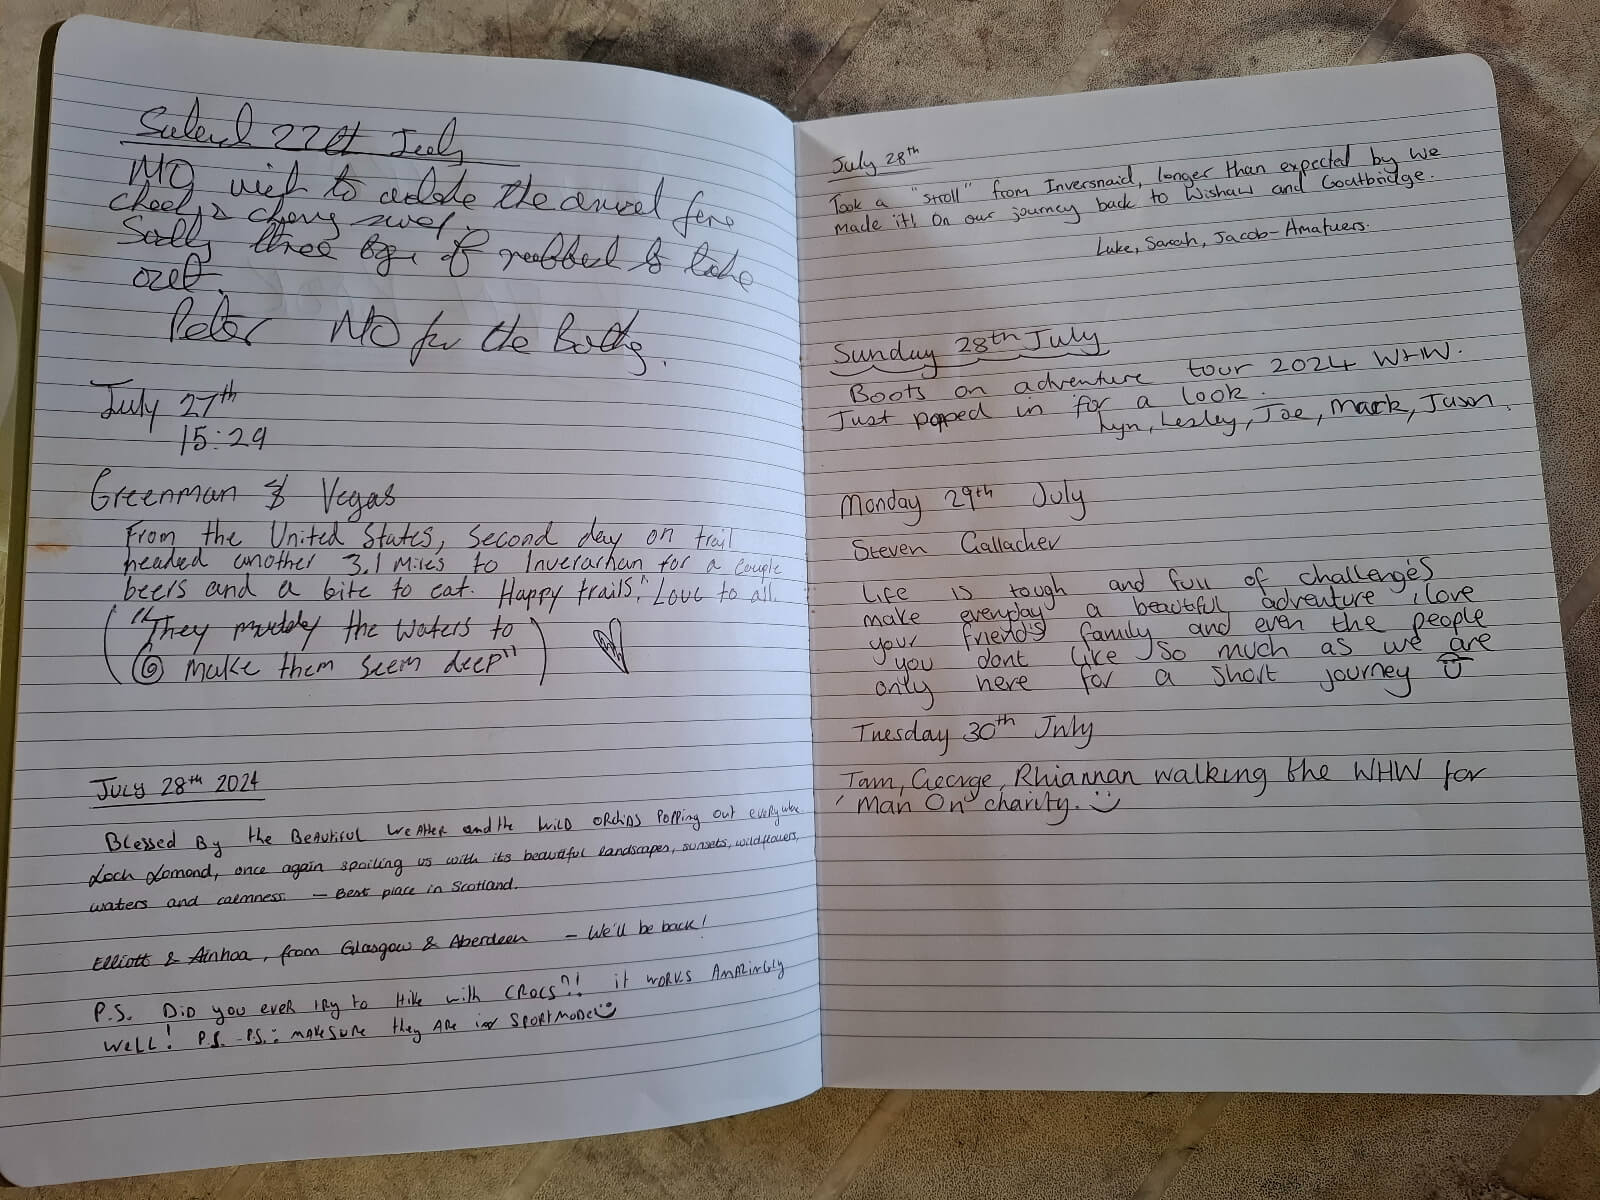 27th July
MO visit to the annual fire
check &
Sadly three bags of rubbish to take
out.
Peter MO for the Bothy.
July 27th
15:29
Greenman & Vegas
From the United States, second day on trail
headed another 3.1 miles to Inverarnan for a couple
beers and a bite to eat. Happy trails. Love to all.
("They muddy the waters to
make them seem deep")
July 28th 2024
Blessed By the Beautiful weather and the wild orchids popping out everywhere
Loch Lomond, once again spoiling us with its beautiful landscapes, sunsets, wildflowers,
waters and calmness. – Best place in Scotland.
Elliott & Ainhoa, from Glasgow & Aberdeen – We'll be back!
P.S. Did you ever try to Hike with CROCS?! it works AMAZINGLY
WELL! P.S. -P.S.: make sure they are in SPORTMODE
July 28th
Took a "stroll" from Inversnaid, longer than expected by we
made it! On our journey back to Wishaw and Coatbridge.
Luke, Sarah, Jacob-Amatuers.
Sunday 28th July
Boots on adventure tour 2024 WHW.
Just popped in for a look.
Lyn, Lesley, Joe, Mark, Jason.
Monday 29th July
Steven Gallacher
Life is tough and full of challenges
make everyday a beautiful adventure, love
your friend's family and even the people
you dont like so much as we are
only here for a short journey
Tuesday 30th July
Tam, George, Rhiannan walking the WHW for
'Man On' charity.